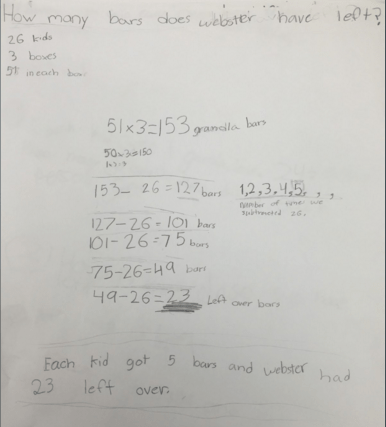 How many bars does webster have left?
26 kids
3 boxes
51 in each box
51×3=153 granolla bars
50×3=150
1×3=3
153- 26=127 bars
1,2,3,4,5, , ,
number of times we
subtracted 26.
127-26=101 bars
101-26=75 bars
75-26=49 bars
49-26=23 Left over bars
Each kid got 5 bars and webster had
23 left over.